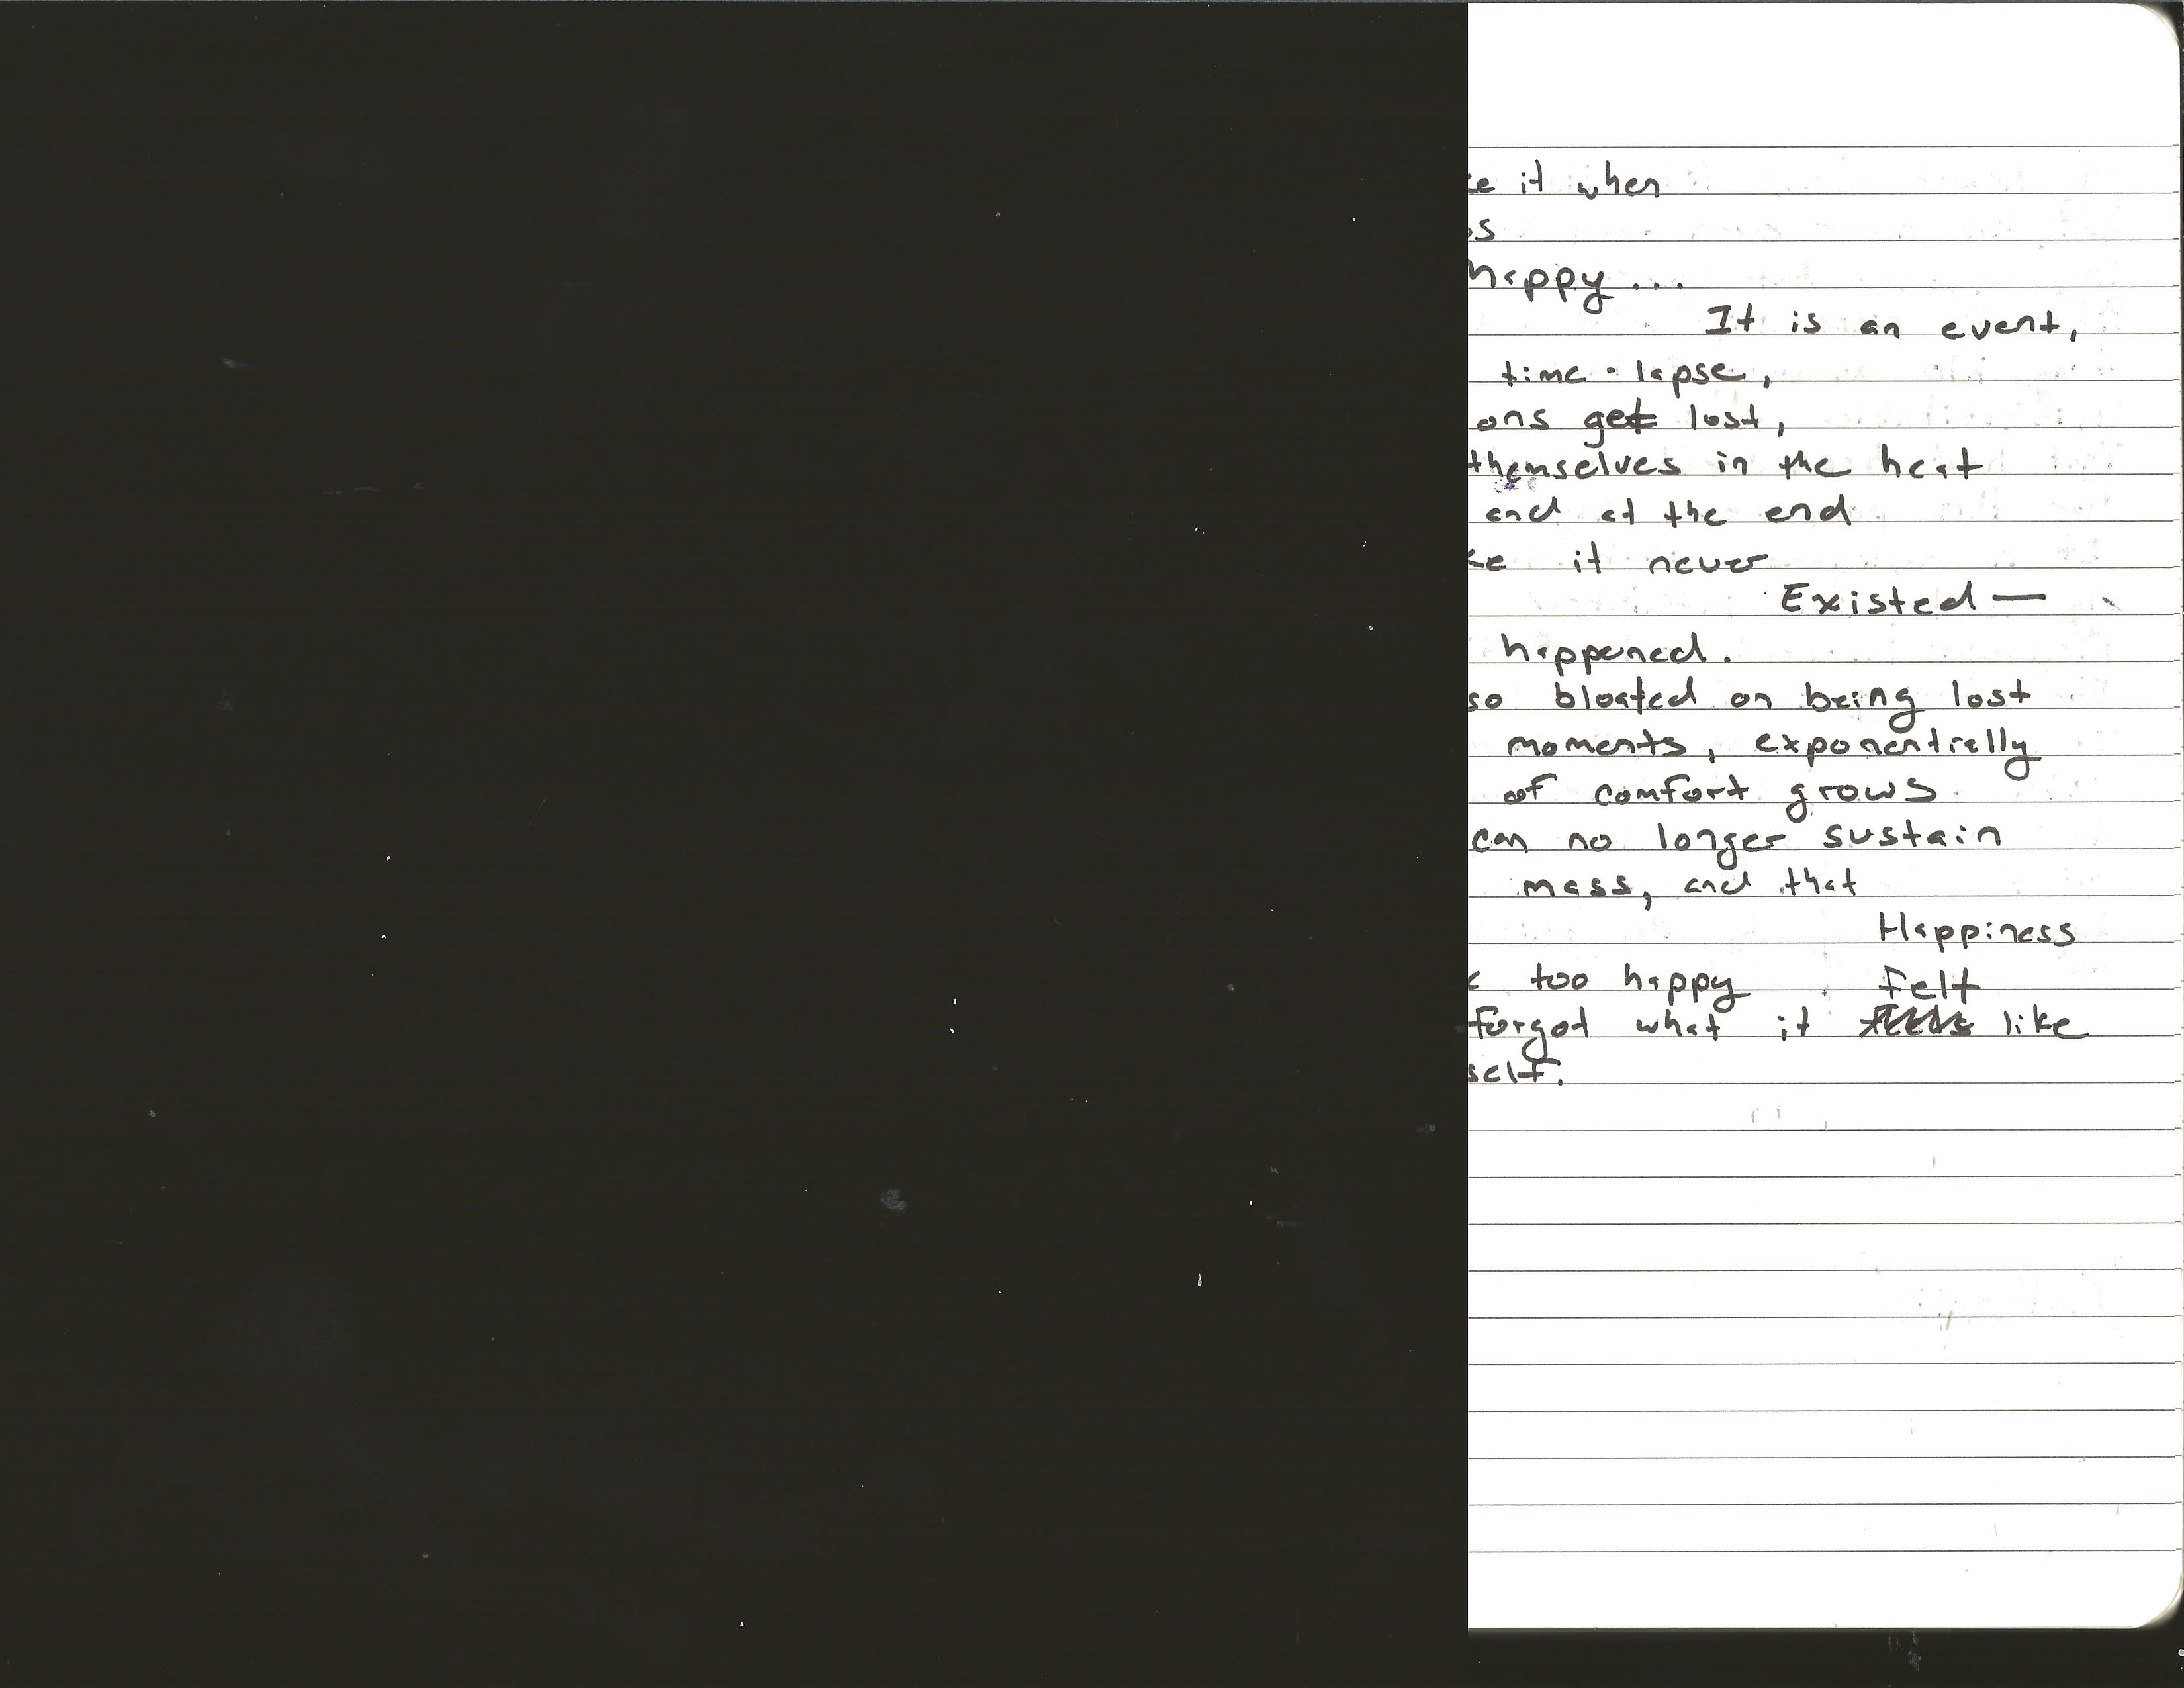 it when
happy...
It is an event,
time-lapse,
ons get lost,
themselves in the heat
and at the end
it never
Existed—
happened.
so bloated on being lost
moments, exponentially
of comfort grows
can no longer sustain
mass, and that
Happiness
too happy felt
forgot what it like
self.